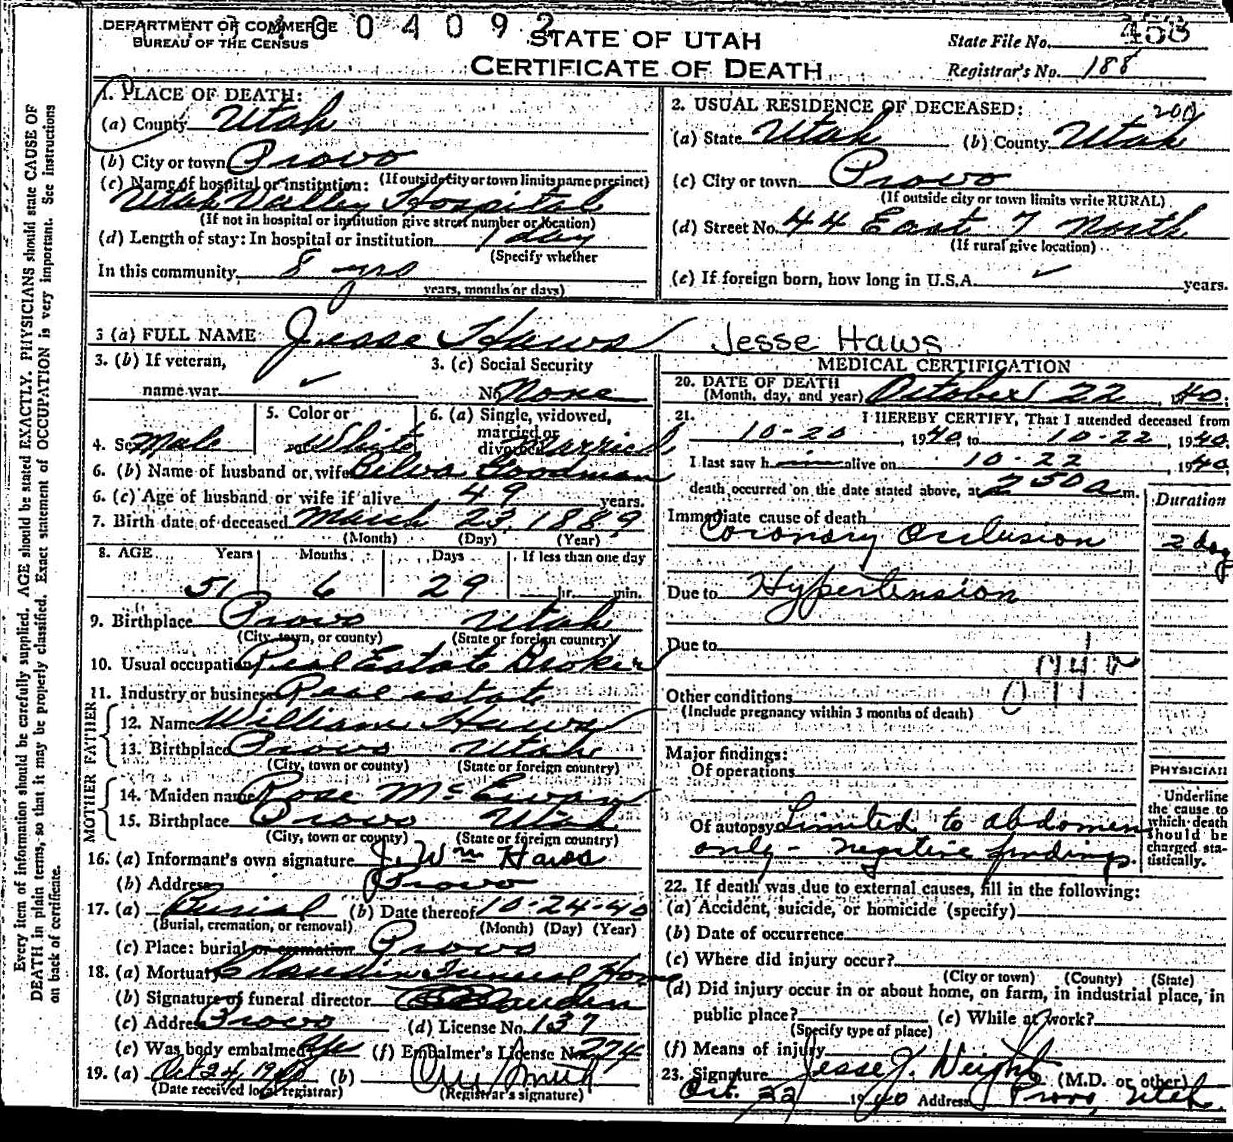 DEPARTMENT OF COMMERCE
BUREAU OF THE CENSUS
004092
STATE OF UTAH
CERTIFICATE OF DEATH
State File No. 458
Registrar's No. 188
Every item of information should be carefully supplied. AGE should be stated EXACTLY. PHYSICIANS should state CAUSE OF
DEATH in plain terms, so that it may be properly classified. Exact statement of OCCUPATION is very important. See instructions
on back of certificate.
1. PLACE OF DEATH:
(a) County Utah
(b) City or town Provo
(If outside city or town limits name precinct)
(c) Name of hospital or institution:
Utah Valley Hospital
(If not in hospital or institution give street number or location)
(d) Length of stay: In hospital or institution 1 day
(Specify whether
In this community 8 yrs
years, months or days)
2. USUAL RESIDENCE OF DECEASED:
200
(a) State Utah (b) County Utah
(c) City or town Provo
(If outside city or town limits write RURAL)
(d) Street No. 44 East 7 North
(If rural give location)
(e) If foreign born, how long in U.S.A. ✓ years.
3 (a) FULL NAME Jesse Haws Jesse Haws
3. (b) If veteran,
name war ✓
3. (c) Social Security
No. None
4. Sex Male
5. Color or
race White
6. (a) Single, widowed,
married or
divorced Married
6. (b) Name of husband or wife Belva Goodman
6. (c) Age of husband or wife if alive 49 years.
7. Birth date of deceased March 23, 1889
(Month) (Day) (Year)
8. AGE Years Months Days If less than one day
51 6 29 hr. min.
9. Birthplace Provo Utah
(City, town, or county) (State or foreign country)
10. Usual occupation Real Estate Broker
11. Industry or business Real estate
FATHER
12. Name William Haws
13. Birthplace Provo Utah
(City, town or county) (State or foreign country)
MOTHER
14. Maiden name Rose McEwan
15. Birthplace Provo Utah
(City, town or county) (State or foreign country)
16. (a) Informant's own signature J. Wm Haws
(b) Address Provo
17. (a) Burial (b) Date thereof 10-24-40
(Burial, cremation, or removal) (Month) (Day) (Year)
(c) Place: burial or cremation Provo
18. (a) Mortuary Claudin Funeral Home
(b) Signature of funeral director
(c) Address Provo (d) License No. 137
(e) Was body embalmed? Yes (f) Embalmer's License No. 274
19. (a) Oct 24, 1940 (b)
(Date received local registrar) (Registrar's signature)
MEDICAL CERTIFICATION
20. DATE OF DEATH
(Month, day, and year) October 22, 1940.
21. I HEREBY CERTIFY, That I attended deceased from
10-20, 1940 to 10-22, 1940
I last saw him alive on 10-22, 1940
death occurred on the date stated above, at 2 50 a m.
Duration
Immediate cause of death
Coronary Occlusion 2 day
Due to Hypertension
Due to
094a
Other conditions
(Include pregnancy within 3 months of death)
Major findings:
Of operations
Of autopsy Limited to abdomen
only - negative findings.
PHYSICIAN
Underline
the cause to
which death
should be
charged sta-
tistically.
22. If death was due to external causes, fill in the following:
(a) Accident, suicide, or homicide (specify)
(b) Date of occurrence
(c) Where did injury occur?
(City or town) (County) (State)
(d) Did injury occur in or about home, on farm, in industrial place, in
public place? (e) While at work?
(Specify type of place)
(f) Means of injury
23. Signature Jesse J. Weight (M.D. or other)
Oct. 22 1940 Address Provo, Utah.